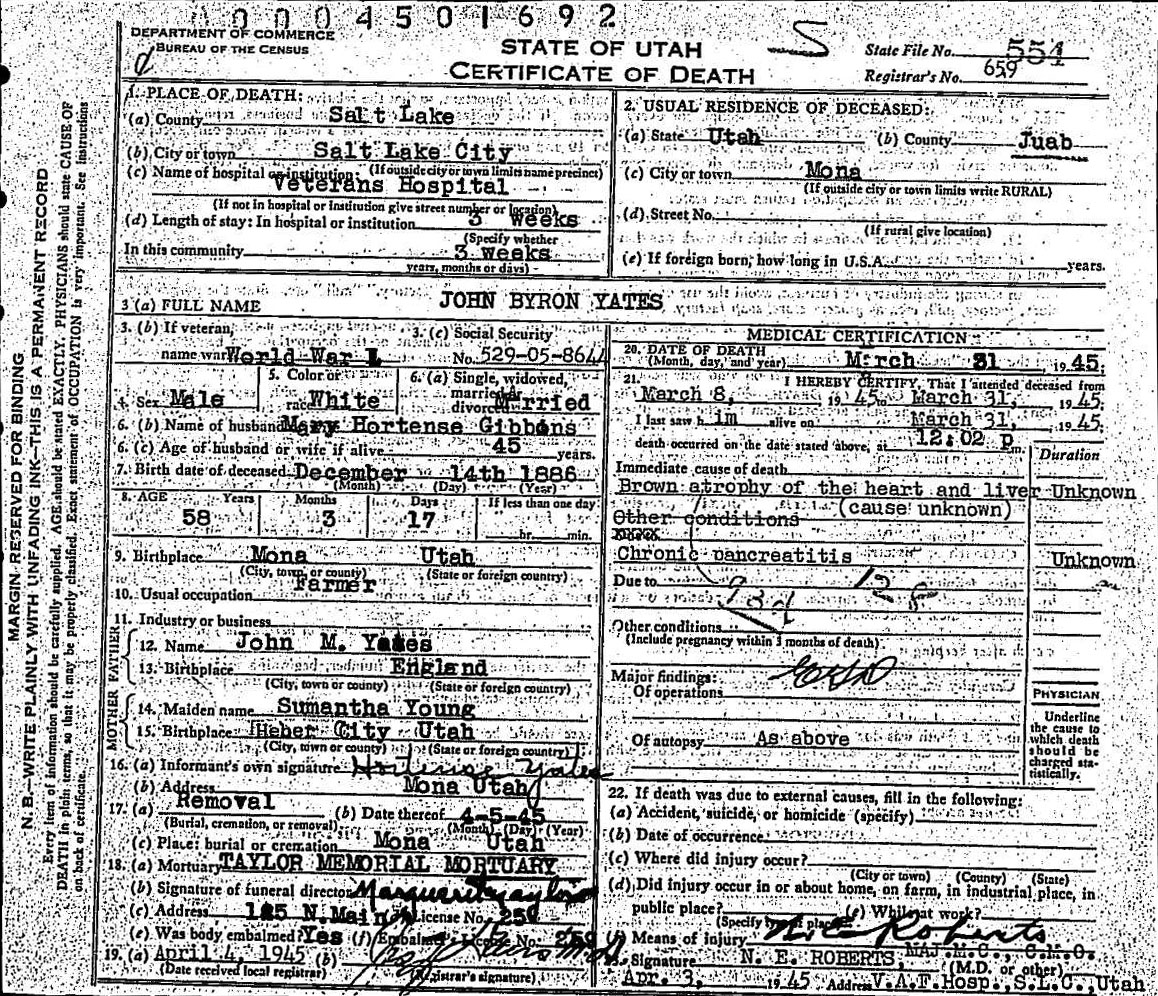 0004501692
DEPARTMENT OF COMMERCE
BUREAU OF THE CENSUS
STATE OF UTAH
CERTIFICATE OF DEATH
S
State File No. 554
Registrar's No. 659
MARGIN RESERVED FOR BINDING
N. B.—WRITE PLAINLY WITH UNFADING INK—THIS IS A PERMANENT RECORD
Every item of information should be carefully supplied. AGE should be stated EXACTLY. PHYSICIANS should state CAUSE OF
DEATH in plain terms, so that it may be properly classified. Exact statement of OCCUPATION is very important. See instructions
on back of certificate.
1. PLACE OF DEATH:
(a) County Salt Lake
(b) City or town Salt Lake City
(If outside city or town limits name precinct)
(c) Name of hospital or institution: Veterans Hospital
(If not in hospital or institution give street number or location)
(d) Length of stay: In hospital or institution 3 weeks
(Specify whether
In this community 3 weeks
years, months or days)
2. USUAL RESIDENCE OF DECEASED:
(a) State Utah (b) County Juab
(c) City or town Mona
(If outside city or town limits write RURAL)
(d) Street No.
(If rural give location)
(e) If foreign born, how long in U.S.A. years.
3 (a) FULL NAME JOHN BYRON YATES
3. (b) If veteran, name war World War I
3. (c) Social Security No. 529-05-8644
4. Sex Male
5. Color or race White
6. (a) Single, widowed, married or divorced Married
6. (b) Name of husband Mary Hortense Gibbons
6. (c) Age of husband or wife if alive 45 years.
7. Birth date of deceased December 14th 1886
(Month) (Day) (Year)
8. AGE Years Months Days If less than one day
58 3 17 hr. min.
9. Birthplace Mona Utah
(City, town, or county) (State or foreign country)
10. Usual occupation Farmer
11. Industry or business
FATHER
12. Name John M. Yates
13. Birthplace England
(City, town or county) (State or foreign country)
MOTHER
14. Maiden name Sumantha Young
15. Birthplace Heber City Utah
(City, town or county) (State or foreign country)
16. (a) Informant's own signature Hortense Yates
(b) Address Mona Utah
17. (a) Removal (b) Date thereof 4-5-45
(Burial, cremation, or removal) (Month) (Day) (Year)
(c) Place: burial or cremation Mona Utah
18. (a) Mortuary TAYLOR MEMORIAL MORTUARY
(b) Signature of funeral director Marguerite Taylor
(c) Address 125 N. Main License No. 259
(e) Was body embalmed? Yes (f) Embalmer License No. 259
19. (a) April 4, 1945 (b)
(Date received local registrar) (Registrar's signature)
MEDICAL CERTIFICATION
20. DATE OF DEATH
(Month, day, and year) March 31 1945.
21. I HEREBY CERTIFY, That I attended deceased from
March 8, 1945 to March 31, 1945.
I last saw h im alive on March 31, 1945.
death occurred on the date stated above, at 12:02 p m.
Duration
Immediate cause of death
Brown atrophy of the heart and liver Unknown
(cause unknown)
Other conditions
Chronic pancreatitis Unknown
Due to
Other conditions
(Include pregnancy within 3 months of death)
Major findings:
Of operations
Of autopsy As above
PHYSICIAN
Underline
the cause to
which death
should be
charged sta-
tistically.
22. If death was due to external causes, fill in the following:
(a) Accident, suicide, or homicide (specify)
(b) Date of occurrence
(c) Where did injury occur?
(City or town) (County) (State)
(d) Did injury occur in or about home, on farm, in industrial place, in
public place? (e) While at work?
(Specify type of place)
(f) Means of injury
N. E. Roberts
Signature N. E. ROBERTS, MAJ.M.C., C.M.O.
(M.D. or other)
Apr. 3, 1945 Address V.A.F.Hosp., S.L.C., Utah